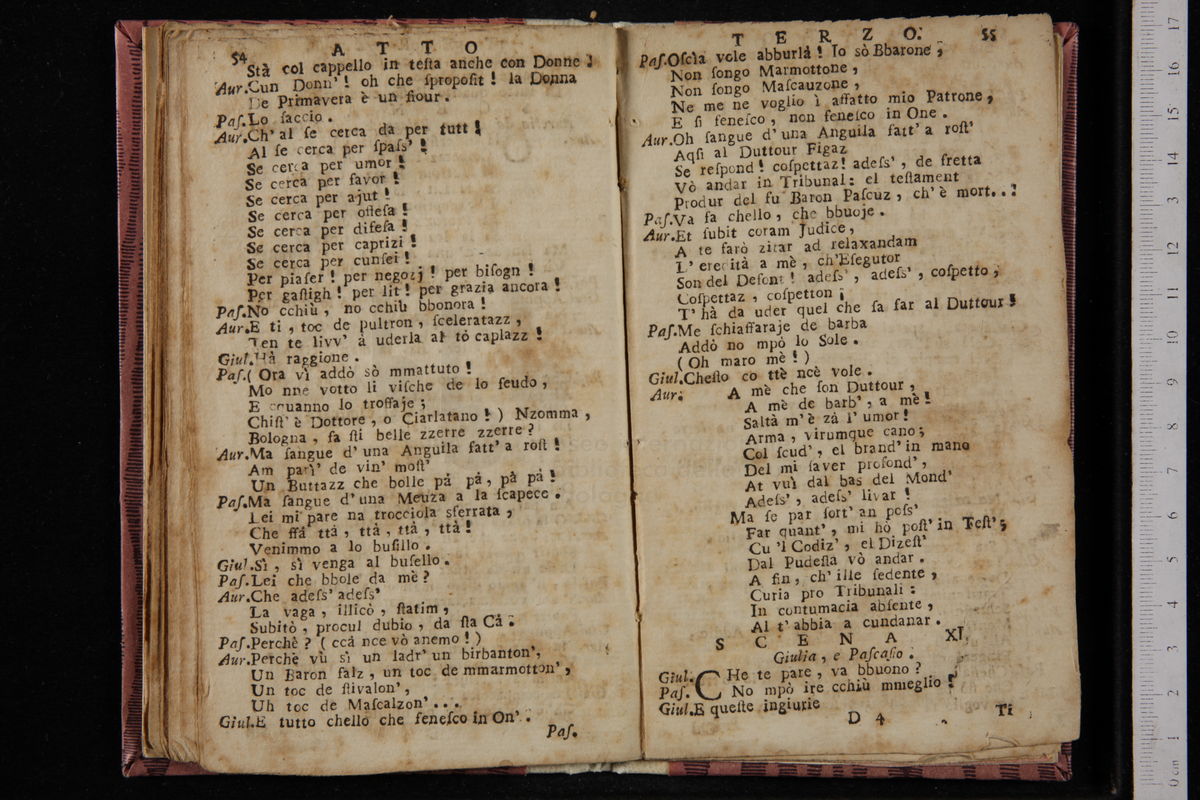 54 A T T O
Stà col cappello in teſta anche con Donne!
Aur. Cun Donn'! oh che ſpropoſit! la Donna
De Primavera è un fiour.
Paſ. Lo ſaccio.
Aur. Ch'al ſe cerca da per tutt!
Al ſe cerca per ſpaſs'!
Se cerca per umor!
Se cerca per favor!
Se cerca per ajut!
Se cerca per offeſa!
Se cerca per difeſa!
Se cerca per caprizi!
Se cerca per cunſei!
Per piaſer! per negozj! per biſogn!
Per gaſtigh! per lit! per grazia ancora!
Paſ. No cchiù, no cchiù bbonora!
Aur. E ti, toc de pultron, ſceleratazz,
Ten te livv' à uderla al tò caplazz!
Giul. Hà raggione.
Paſ. (Ora vì addò sò mmattuto!
Mo nne votto li viſche de lo feudo,
E cruanno lo troffaje;
Chiſt' è Dottore, o Ciarlatano!) Nzomma,
Bologna, fa ſti belle zzerre zzerre?
Aur. Ma ſangue d'una Anguila fatt' a roſt!
Am pari' de vin' moſt'
Un Buttazz che bolle pà pà, pà pà!
Paſ. Ma ſangue d'una Meuza a la ſcapece.
Lei mi pare na trocciola sferrata,
Che ffà ttà, ttà, ttà, ttà!
Venimmo a lo buſillo.
Giul. Sì, sì venga al buſello.
Paſ. Lei che bbole da mè?
Aur. Che adeſs' adeſs'
La vaga, illicò, ſtatim,
Subitò, procul dubio, da ſta Cà.
Paſ. Perchè? (ccà nce vò anemo!)
Aur. Perchè vù sì un ladr' un birbanton',
Un Baron falz, un toc de mmarmotton',
Un toc de ſtivalon',
Uh toc de Maſcalzon'...
Giul. E tutto chello che feneſco in On'.
Paſ.
T E R Z O. 55
Paſ. Oſcìa vole abburlà! Io sò Bbarone,
Non ſongo Marmottone,
Non ſongo Maſcauzone,
Ne me ne voglio ì affatto mio Patrone,
E ſi feneſco, non feneſco in One.
Aur. Oh ſangue d'una Anguila fatt' a roſt'
Aqſi al Duttour Figaz
Se reſpond! coſpettaz! adeſs', de fretta
Vò andar in Tribunal: el teſtament
Produr del fu Baron Paſcuz, ch'è mort...
Paſ. Va fa chello, che bbuoje.
Aur. Et ſubit coram Judice,
A te farò zitar ad relaxandam
L' eredità a mè, ch'Eſegutor
Son del Defont! adeſs', adeſs', coſpetto,
Coſpettaz, coſpetton;
T' hà da uder quel che fa far al Duttour!
Paſ. Me ſchiaffaraje de barba
Addò no mpò lo Sole.
(Oh maro mè!)
Giul. Cheſto co ttè ncè vole.
Aur. A mè che ſon Duttour,
A mè de barb', a mè!
Saltà m'è zà l'umor!
Arma, virumque cano;
Col ſcud', el brand' in mano
Del mi ſaver profond',
At vuì dal bas del Mond'
Adeſs', adeſs' livar!
Ma ſe par fort' an poſs'
Far quant', mi hò poſt' in Teſt';
Cu 'l Codiz', el Dizeſt'
Dal Pudeſta vò andar.
A fin, ch' ille ſedente,
Curia pro Tribunali:
In contumacia abſente,
Al t' abbia a cundanar.
S C E N A XI.
Giulia, e Paſcaſio.
Giul. CHe te pare, va bbuono?
Paſ. No mpò ire cchiù mmeglio!
Giul. E queſte ingiurie
D 4 Ti